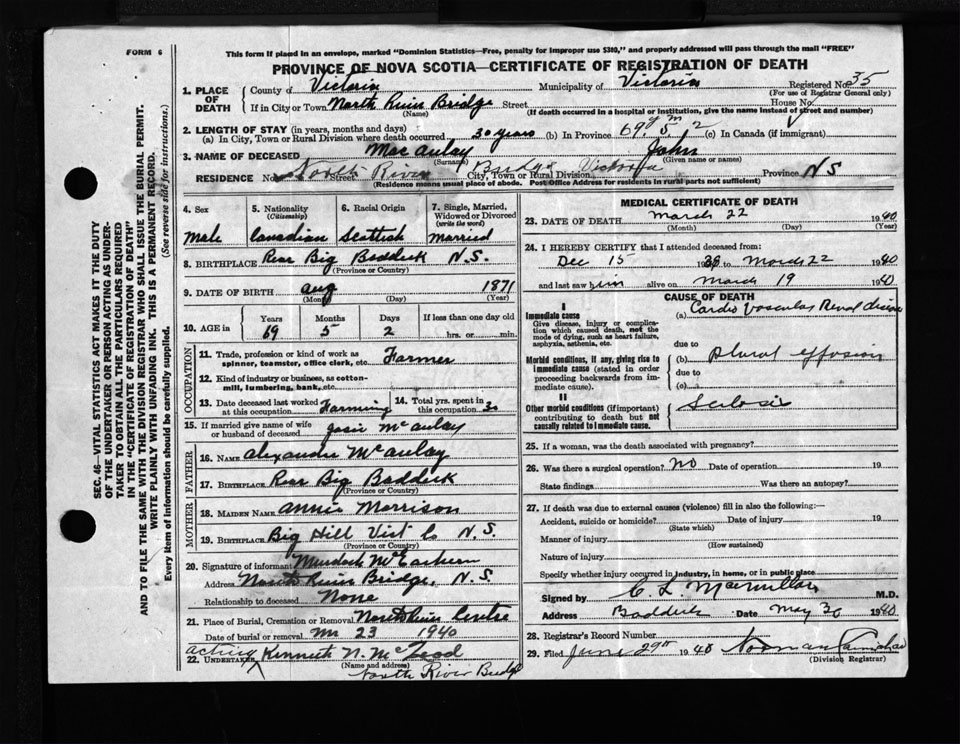 FORM 6
This form if placed in an envelope, marked "Dominion Statistics—Free, penalty for improper use $300," and properly addressed will pass through the mail "FREE"
PROVINCE OF NOVA SCOTIA—CERTIFICATE OF REGISTRATION OF DEATH
1. PLACE OF DEATH
County of Victoria Municipality of Victoria Registered No. 35
(For use of Registrar General only)
If in City or Town North River Bridge Street House No.
(Name) (If death occurred in a hospital or institution, give the name instead of street and number)
2. LENGTH OF STAY (in years, months and days)
(a) In City, Town or Rural Division where death occurred 30 years (b) In Province 69 y 5 m 2 (c) In Canada (if immigrant)
3. NAME OF DECEASED MacAulay John
(Surname) (Given name or names)
RESIDENCE No. North River Street Bridge City, Town or Rural Division Victoria Province N S
(Residence means usual place of abode. Post Office Address for residents in rural parts not sufficient)
4. Sex
Male
5. Nationality
(Citizenship)
Canadian
6. Racial Origin
Scottish
7. Single, Married, Widowed or Divorced
(write the word)
Married
8. BIRTHPLACE Rear Big Baddeck N.S.
(Province or Country)
9. DATE OF BIRTH Aug 1871
(Month) (Day) (Year)
10. AGE in
Years Months Days If less than one day old
69 5 2 hrs. or min.
OCCUPATION
11. Trade, profession or kind of work as spinner, teamster, office clerk, etc. Farmer
12. Kind of industry or business, as cotton-mill, lumbering, bank, etc.
13. Date deceased last worked at this occupation Farming
14. Total yrs. spent in this occupation 30
15. If married give name of wife or husband of deceased Josie McAulay
FATHER
16. NAME Alexander McAulay
17. BIRTHPLACE Rear Big Baddeck
(Province or Country)
MOTHER
18. MAIDEN NAME Annie Morrison
19. BIRTHPLACE Big Hill Vict Co N.S.
(Province or Country)
20. Signature of informant Murdoch McEachern
Address North River Bridge, N.S.
Relationship to deceased None
21. Place of Burial, Cremation or Removal North River Centre
Date of burial or removal Mr 23 1940
acting
22. UNDERTAKER Kenneth N. McLeod
(Name and address)
North River Bridge
MEDICAL CERTIFICATE OF DEATH
23. DATE OF DEATH March 22 1940
(Month) (Day) (Year)
24. I HEREBY CERTIFY that I attended deceased from:
Dec 15 1939 to March 22 1940
and last saw him alive on March 19 1940
CAUSE OF DEATH
I
Immediate cause
Give disease, injury or complication which caused death, not the mode of dying, such as heart failure, asphyxia, asthenia, etc.
(a) Cardio Vascular Renal disease
due to
Morbid conditions, if any, giving rise to immediate cause (stated in order proceeding backwards from immediate cause).
(b) Plural effusion
due to
(c)
II
Other morbid conditions (if important) contributing to death but not causally related to immediate cause.
25. If a woman, was the death associated with pregnancy?
26. Was there a surgical operation? No Date of operation 19
State findings Was there an autopsy?
27. If death was due to external causes (violence) fill in also the following:—
Accident, suicide or homicide? Date of injury 19
(State which)
Manner of injury
(How sustained)
Nature of injury
Specify whether injury occurred in industry, in home, or in public place
Signed by C. L. Macmillan M.D.
Address Baddeck Date May 30 1940
28. Registrar's Record Number
29. Filed June 29th 1940 Norman Carmichael
(Division Registrar)
SEC. 46—VITAL STATISTICS ACT MAKES IT THE DUTY
OF THE UNDERTAKER OR PERSON ACTING AS UNDER-
TAKER TO OBTAIN ALL THE PARTICULARS REQUIRED
IN THE "CERTIFICATE OF REGISTRATION OF DEATH"
AND TO FILE THE SAME WITH THE DIVISION REGISTRAR WHO SHALL ISSUE THE BURIAL PERMIT.
WRITE PLAINLY WITH UNFADING INK. THIS IS A PERMANENT RECORD.
Every item of information should be carefully supplied. (See reverse side for instructions.)